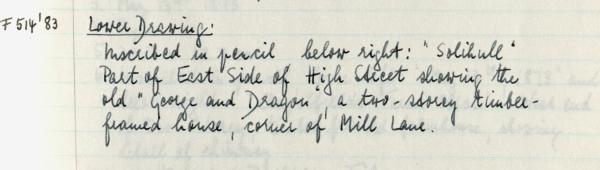 F514'83 Lower Drawing:
Inscribed in pencil below right: "Solihull"
Part of East Side of High Street showing the
old "George and Dragon", a two-storey timber-
framed house, corner of Mill Lane.